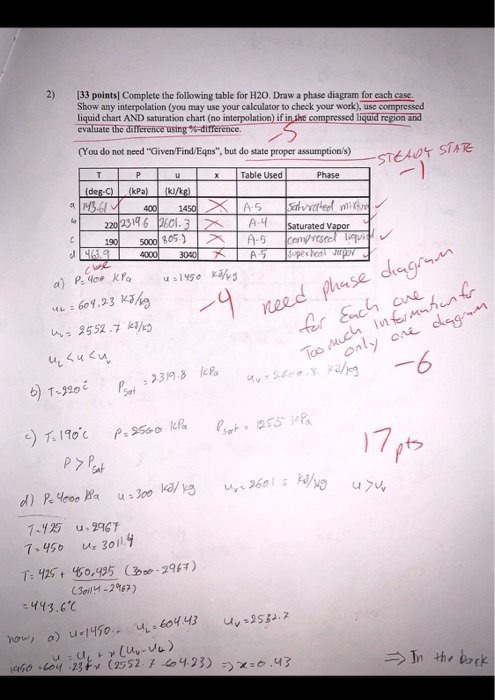 2) [33 points] Complete the following table for H2O. Draw a phase diagram for each case.
Show any interpolation (you may use your calculator to check your work), use compressed
liquid chart AND saturation chart (no interpolation) if in the compressed liquid region and
evaluate the difference using %-difference.
-5
(You do not need "Given/Find/Eqns", but do state proper assumption/s)
-STEADY STATE
-1
T P u x Table Used Phase
(deg-C) (kPa) (kJ/kg)
a 143.61 ✓ 400 1450 X A-5 Saturated mixture ✓
b 220 2319.6 2601.3 X A-4 Saturated Vapor
c 190 5000 805.1 X A-5 compressed liquid ✓
d 463.9 4000 3040 X A-5 superheat vapor ✓
close
a) P=400 kPa u=1450 kJ/kg
-4 need phase diagram
for Each one
Too much Information for
only one diagram
-6
uL = 604.23 kJ/kg
uv = 2552.7 kJ/kg
uL < u < uv
b) T=220°C Psat = 2319.8 kPa uv = 2600.3 kJ/kg
c) T=190°C P=2500 kPa Psat = 1255 kPa
17 pts
P > Psat
d) P=4000 kPa u=300 kJ/kg uv=2601.5 kJ/kg u>uv
T=425 u=2967
T=450 u=3011.4
T= 425 + 450-425 (3000-2967)
(3011.4-2967)
=443.6°C
now, a) u=1450 uL=604.43 uv=2532.7
u = uL + x (uv-uL)
1450=604.23+x (2552.7-604.23) => x=0.43
=> In the back